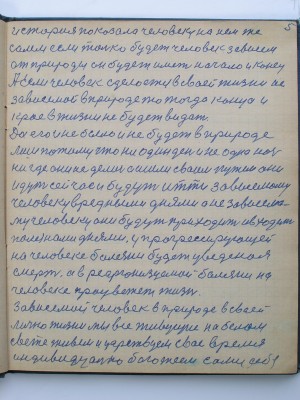 5
история показала человеку на нем же
самом если только будет человек зависем
от природы он будет иметь начало и конец
А если человек сделается в своей жизни не
зависемой в природе то тогда конца и
края в жизни не будет видать.
Да его и не было и не будет в природе
лиш потому что ни один ден и не одна ноч
нигде они не делис они своим путем они
идут сейчас и будут итти зависемому
человеку вредными днями а не зависемо
му человеку они будут приходить и уходить
полезными днями, у прогрессирующей
на человеке болезни будет уведеная
смерть. а в реорганизуемой болезни на
человеке процветет жизнь.
Зависемой человек в природе в своей
лично жизни мы все живущие на белом
свете живем и царствуем свое время
индивидуално боготеем сами себе